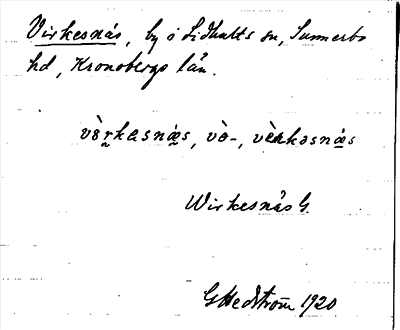 Virkesnäs, by i Lidhults sn, Sunnerbo
hd, Kronobergs län.
vè̤rkesnä̤s, vè-, vèrkəsnä̤s
Wirkesnäs G.
G Hedström 1920